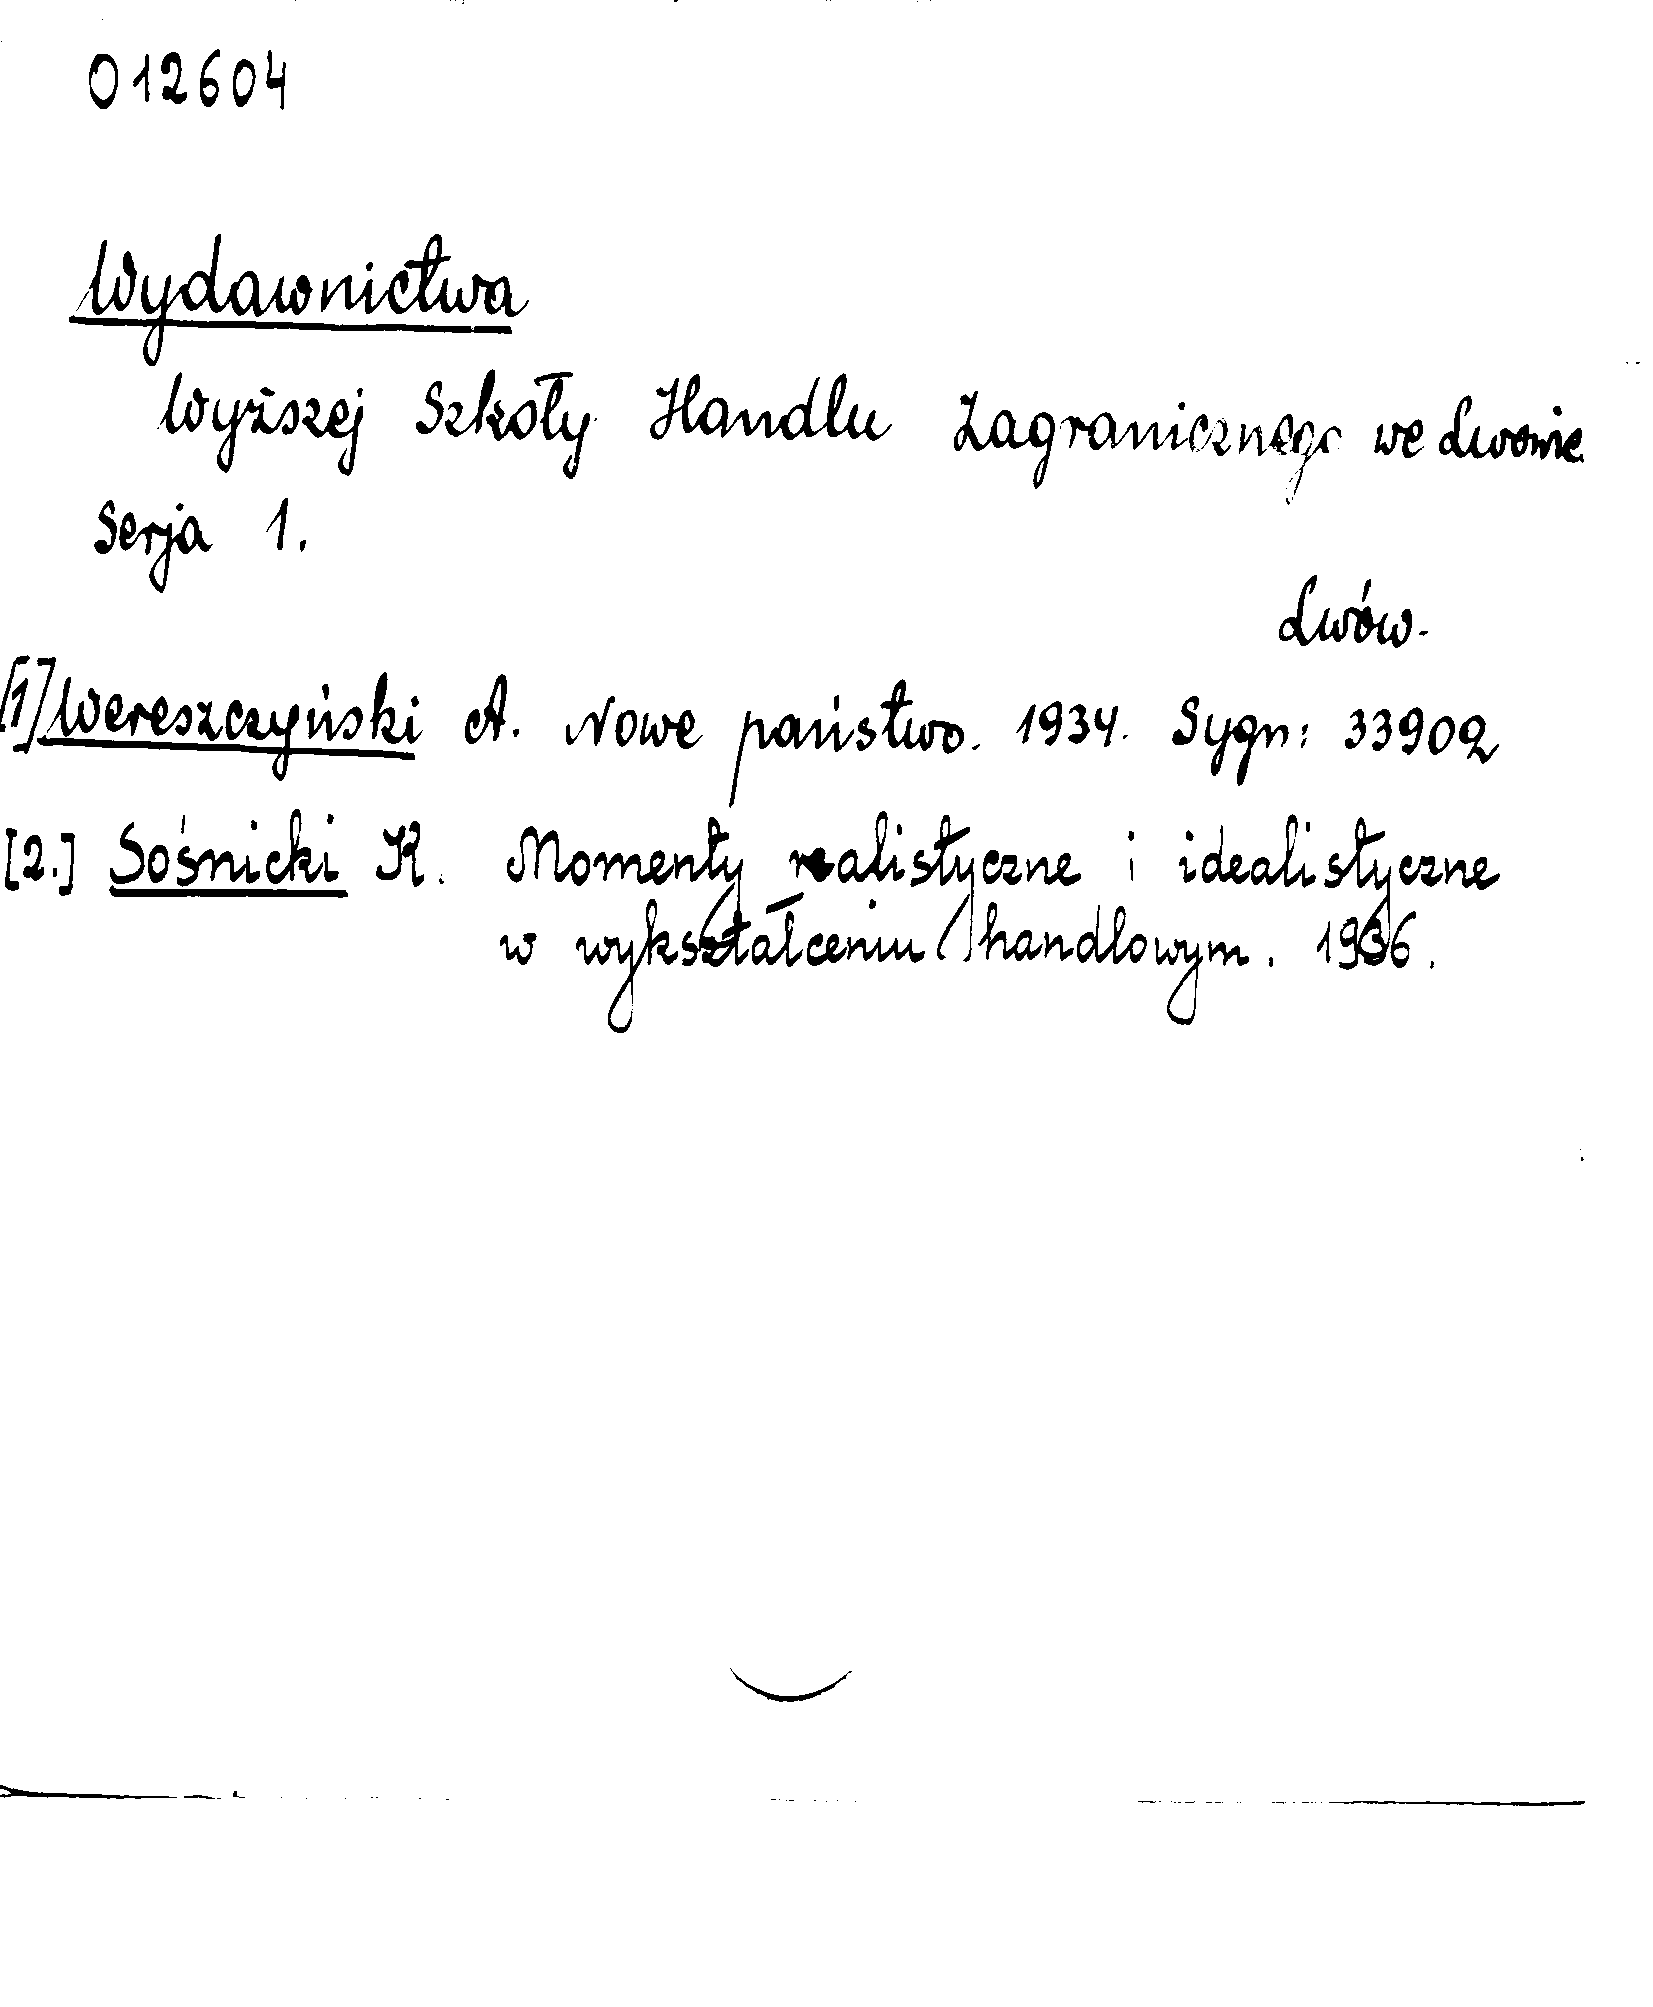 012604
Wydawnictwa
Wyższej Szkoły Handlu Zagranicznego we Lwowie
Serja 1.
Lwów.
[1] Wereszczyński A. Nowe państwo. 1934. Sygn: 33902
[2.] Sośnicki K. Momenty realistyczne i idealistyczne
w wykształceniu handlowym. 1936.